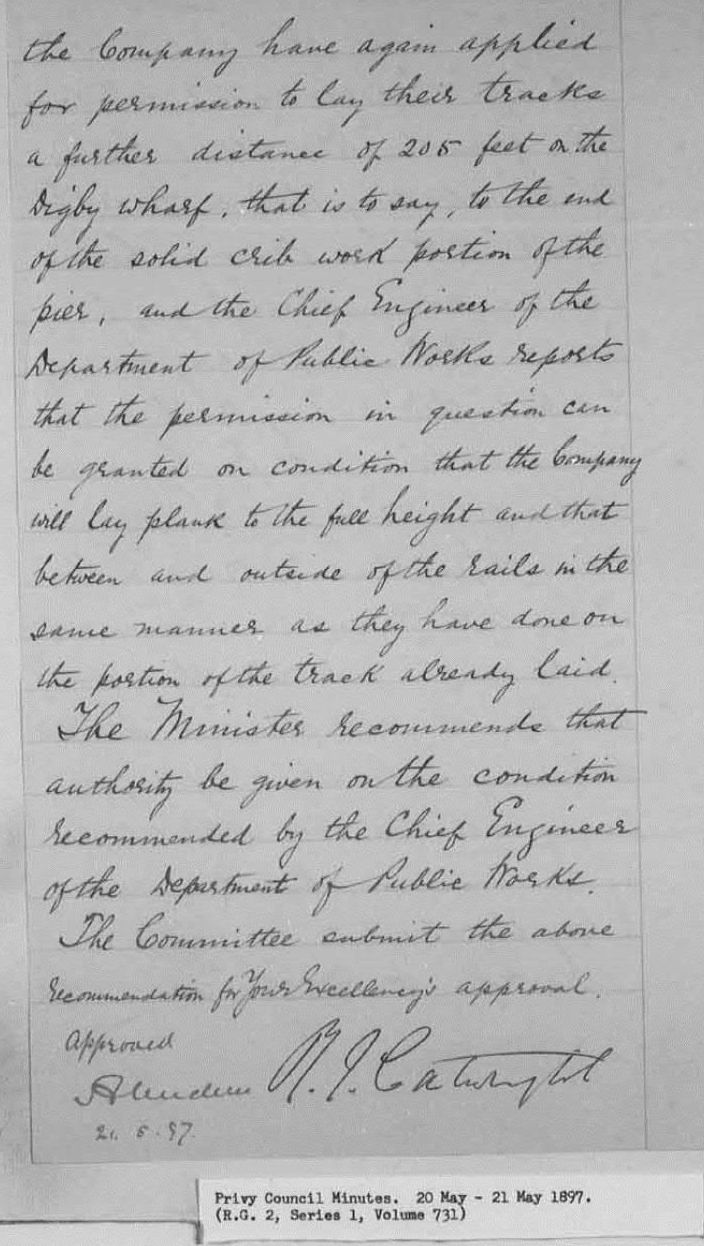 the Company have again applied
for permission to lay their tracks
a further distance of 205 feet on the
Digby wharf, that is to say, to the end
of the solid crib work portion of the
pier, and the Chief Engineer of the
Department of Public Works reports
that the permission in question can
be granted on condition that the Company
will lay plank to the full height and that
between and outside of the rails in the
same manner as they have done on
the portion of the track already laid.
The Minister recommends that
authority be given on the condition
recommended by the Chief Engineer
of the Department of Public Works.
The Committee submit the above
recommendation for Your Excellency's approval.
Approved
R. J. Cartwright
Aberdeen
21. 5. 97.
Privy Council Minutes. 20 May - 21 May 1897.
(R.G. 2, Series 1, Volume 731)